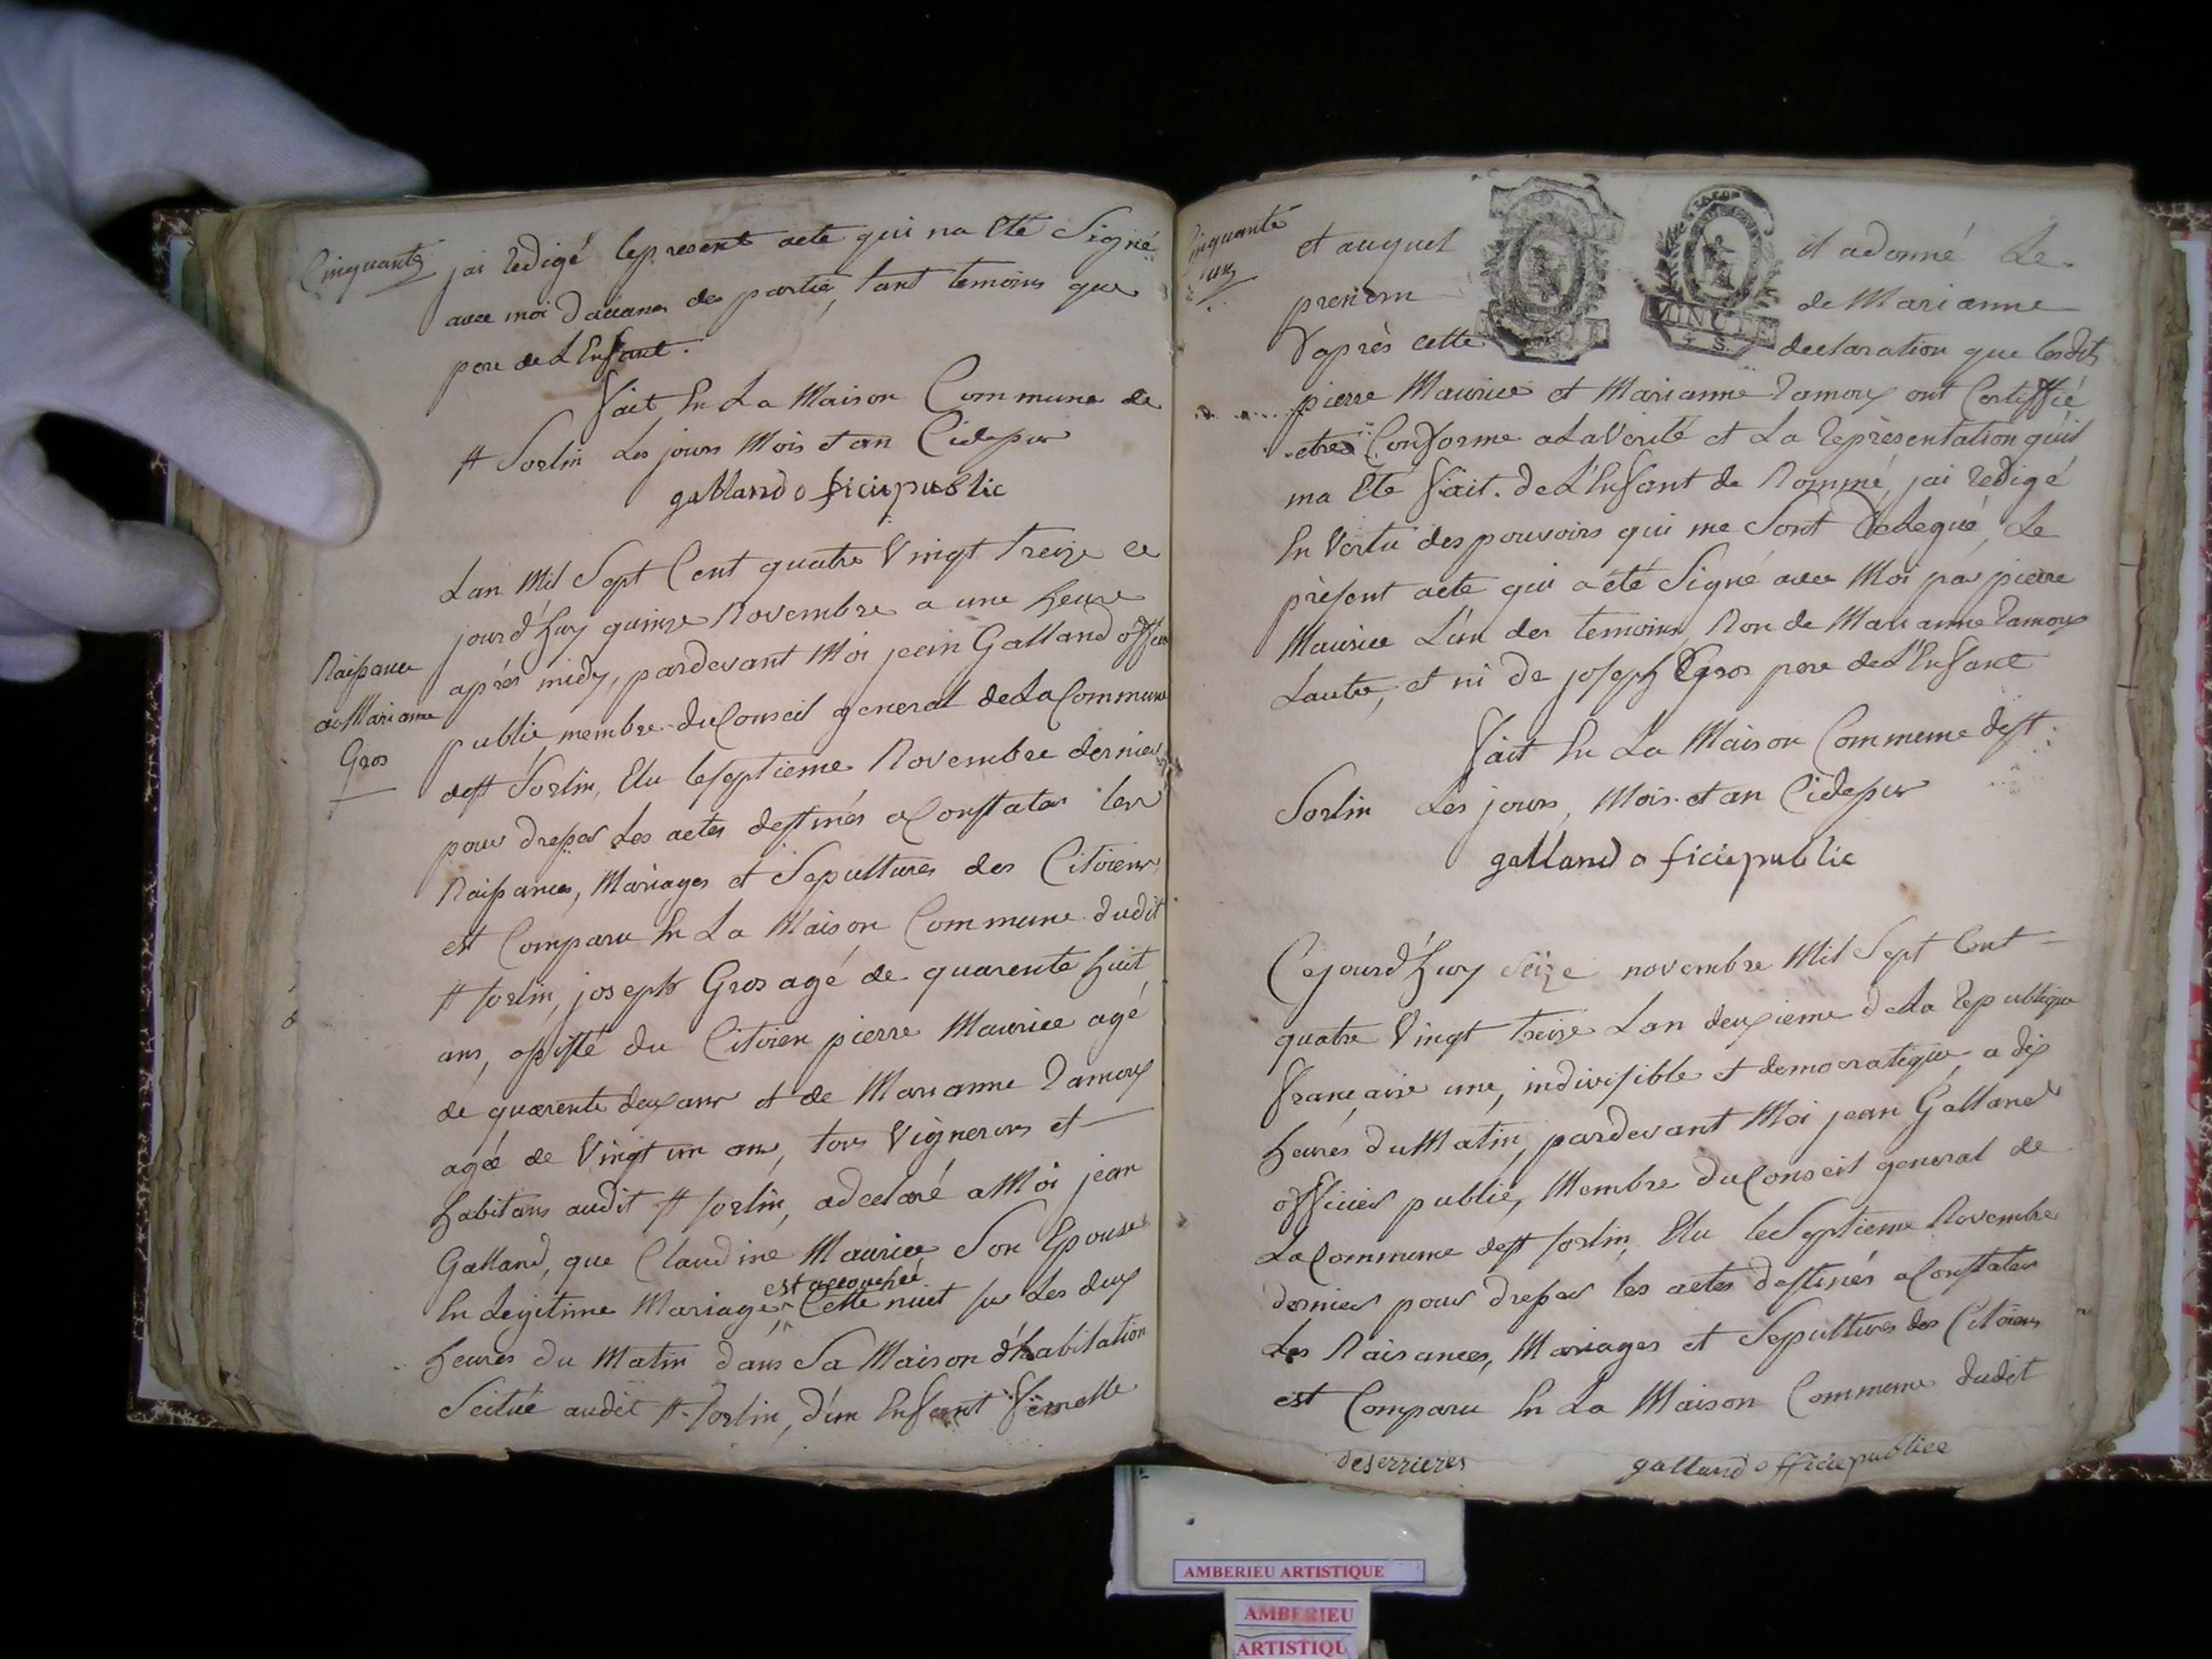 Cinquante
jai redigé le present acte qui na Eté Signé
avec moi daucunes des partie, tant temoins que
pere de L'Enfant.
fait En La Maison Commune de
St Sorlin Les jours Mois et an Cidessus
galland oficiepublic
Lan Mil Sept Cent quatre Vingt treize ce
jourd'huy quinze Novembre a une heure
après midy, pardevant Moi jean Galland offier
public, membre du Conseil general de La Commune
de St Sorlin, Elu le septieme Novembre dernier
pour dresser Les actes destinés a Constater les
Naissances, Mariages et Sepultures des Citoiens
est Comparu En La Maison Commune dudit
St Sorlin, joseph Gros agé de quarente huit
ans, assisté du Citoien pierre Maurice agé
de quarente deux ans et de Marianne Ramoux
agée de Vingt un ans, tous Vignerons et
habitans audit St Sorlin, a declaré a Moi jean
Galland, que Claudine Maurice Son Epouse
En Legitime Mariage, est accouchée Cette nuit sur Les deux
heures du Matin dans Sa Maison d'habitation
Scituée audit St Sorlin, d'un Enfant femelle
Naissance
de Marianne
Gros
Cinquante
un
et auquel il a donné Le
prenom de Marianne
D'après cette declaration que lesdits
pierre Maurice et Marianne Ramoux ont Certiffié
etre Conforme a La Verité et La Représentation quil
ma Eté fait de L'Enfant de Nommé, jai redigé
En Vertu des pouvoirs qui me Sont Delegué, Le
présent acte qui a été Signé avec Moi par pierre
Maurice L'un des temoins, Non de Marianne Ramoux
Lautre, et ni de joseph Gros pere de L'Enfant
fait En La Maison Commune de St
Sorlin Les jours, Mois et an Cidessus
galland o ficiepublic
Cejourd'huy Seize novembre Mil Sept Cent
quatre Vingt treize Lan deuxieme de La Republique
française une, indivisible et democratique, a dix
heures du Matin, pardevant Moi jean Galland
officier public, Membre du Conseil general de
La Commune de St Sorlin, Elu le Septieme Novembre
dernier pour dresser les actes destinés a Constater
Les Naisances, Mariages et Sepultures des Citoiens
est Comparu En La Maison Commune dudit
deserrieres galland officiepublice
MINUTE
AMBERIEU ARTISTIQUE
AMBERIEU
ARTISTIQU